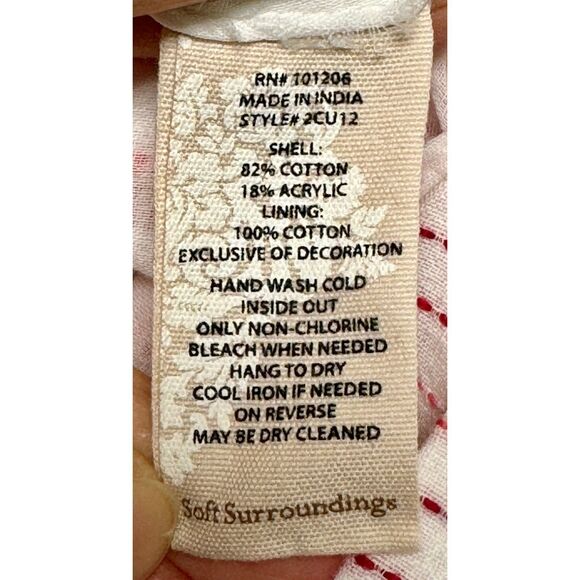 RN# 101206
MADE IN INDIA
STYLE# 2CU12
SHELL:
82% COTTON
18% ACRYLIC
LINING:
100% COTTON
EXCLUSIVE OF DECORATION
HAND WASH COLD
INSIDE OUT
ONLY NON-CHLORINE
BLEACH WHEN NEEDED
HANG TO DRY
COOL IRON IF NEEDED
ON REVERSE
MAY BE DRY CLEANED
Soft Surroundings